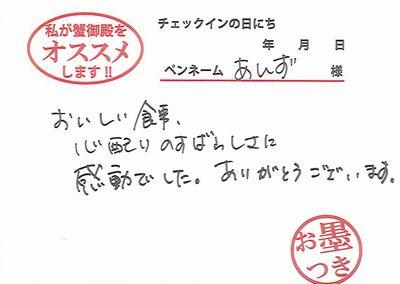 私が蟹御殿を
オススメ
します!!
チェックインの日にち
年 月 日
ペンネーム あんず 様
おいしい食事、
心配りのすばらしさに
感動でした。ありがとうございます。
お墨
つき